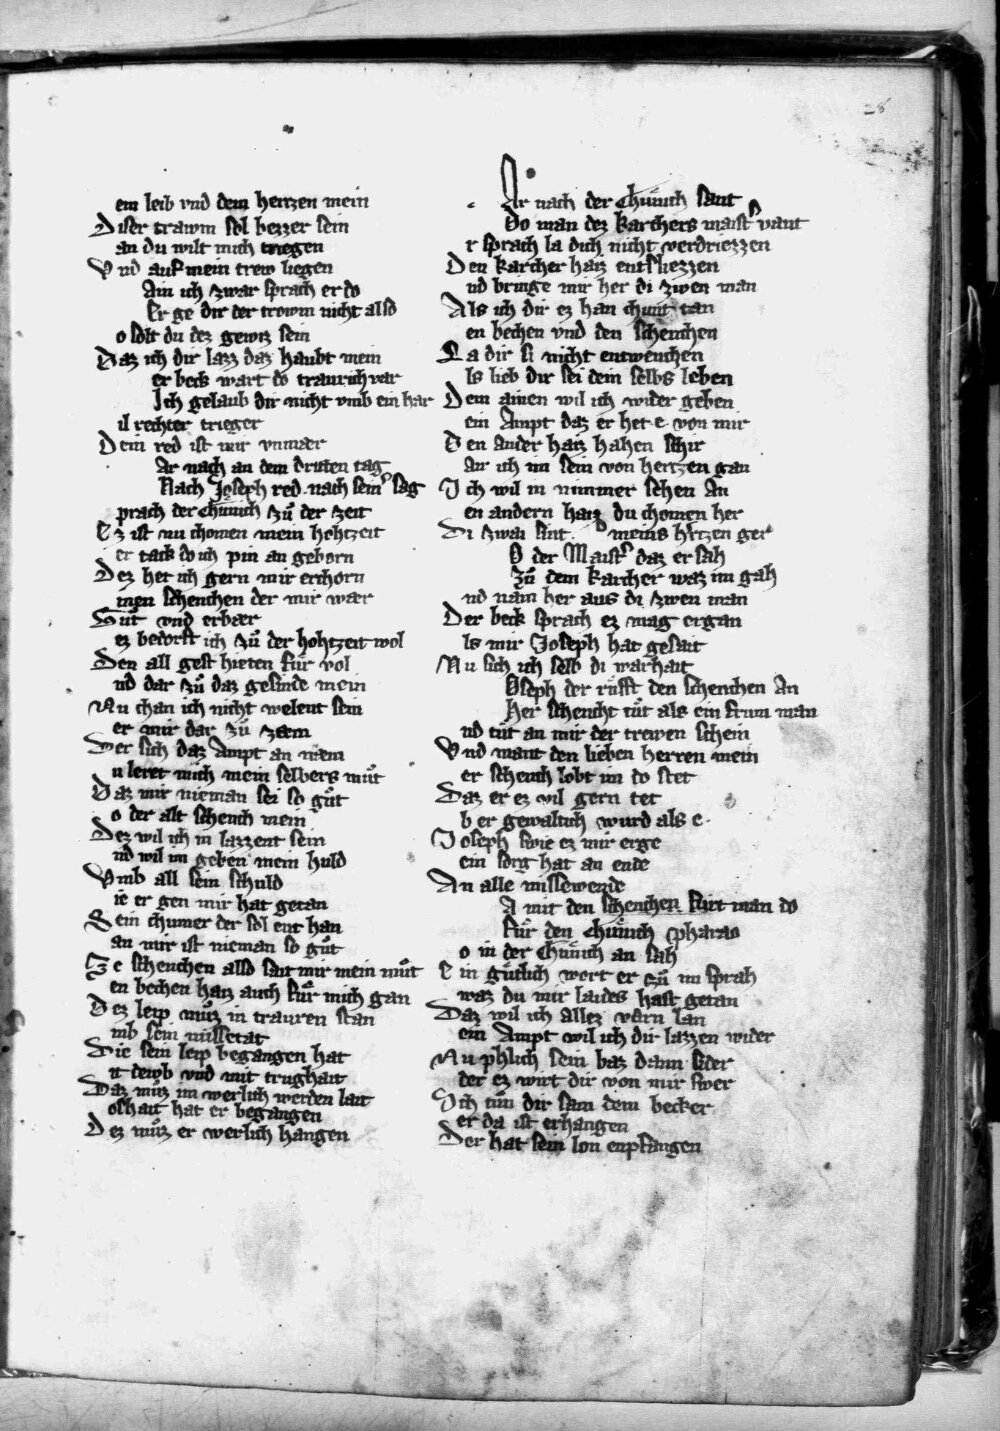 28
em leib vnd dem hertzen mein
Diser trawm sol bezzer sein
an du wilt mich triegen
Vnd auf mein trew liegen
Ain ich zwar sprach er do
Er ge dir der trowm nicht also
o solt du dez gewiz sein
Daz ich dir lazz daz haubt mein
er beck wart do traurich var
Ich gelaub dir nicht vmb ein har
il rechter trieger
Dein red ist mir vnmaer
Ar nach an dem dritten tag
Nach Joseph red nach sein' sag
prach der Chünich zů der zeit
Ez ist nu chomen mein hohtzeit
er tack do ich pin an geborn
Dez het ich gern mir erchorn
inen schenchen der mir waer
Gůt vnd erbaer
ez bedorft ich zů der hohtzeit wol
Den all gest hieten für vol
nd dar zů daz gesinde mein
Nu chan ich nicht welent sein
er mir dar zů zaem
Der sich daz Ampt an naem
u leret mich mein selbers můt
Daz mir nieman sei so gůt
o der alt schench mein
Dez wil ich in lazzent sein
nd wil im geben mein huld
Vmb all sein schuld
ie er gen mir hat getan
Sein chumer der sol ent han
an mir ist nieman so gůt
Ze schenchen also sait mir mein můt
en bechen haiz auch für mich gan
Dez leip můz in trauren stan
mb sein missetat
Die sein leip begangen hat
it dewb vnd mit trughait
Daz můz im werlich werden lait
oshait hat er begangen
Dez můz er werlich hangen
Ar nach der Chünich sant
Do man dez karchers maist' vant
r sprach la dich nicht verdriezzen
Den karcher haiz entsliezzen
nd bringe mir her di zwen man
Als ich dir ez han chunt tan
en bechen vnd den schenchen
La dir si nicht entwenchen
ls lieb dir sei dein selbs leben
Dem ainen wil ich wider geben
ein Ampt daz er het e von mir
Den ander haiz hahen schir
an ich im sein von hertzen gan
Ich wil in nimmer sehen An
en andern haiz du chomen her
Di zwai sint meins h'rtzen ger
O der Maist' daz ersah
Zů dem karcher waz im gah
nd nam her aus di zwen man
Der beck sprach ez mag ergan
ls mir Joseph hat gesait
Nu sich ich selb di warhait
Oseph der růfft den schenchen An
Her schencht tůt als ein frum man
nd tůt an mir der trewen schein
Vnd mant den lieben herren mein
er schench lobt im do stet
Daz er ez vil gern tet
b er gewaltich wurd als e
Joseph swie ez mir erge
ein sorg hat an ende
An alle missewende
A mit den schenchen fürt man do
Für den Chünich pharao
o in der Chünich an sah
Ein gütlich wort er zů im sprah
waz du mir laides hast getan
Daz wil ich allez varn lan
ein Ampt wil ich dir lazzen wider
Nu phlich sein baz dann sider
der ez wirt dir von mir swer
Ich tůn dir sam dem becker
er da ist erhangen
Der hat sein lon enpfangen